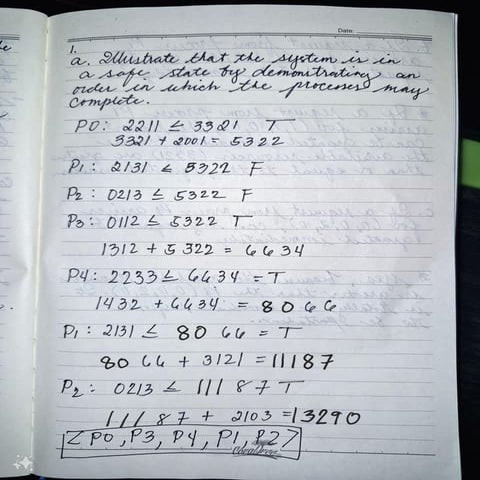 Date:
1.
a. Illustrate that the system is in
a safe state by demonstrating an
order in which the processes may
complete.
P0: 2211 ≤ 3321 T
3321 + 2001 = 5322
P1: 2131 ≤ 5322 F
P2: 0213 ≤ 5322 F
P3: 0112 ≤ 5322 T
1312 + 5322 = 6634
P4: 2233 ≤ 6634 = T
1432 + 6634 = 8066
P1: 2131 ≤ 8066 = T
8066 + 3121 = 11187
P2: 0213 ≤ 11187 T
11187 + 2103 = 13290
< P0, P3, P4, P1, P2 >